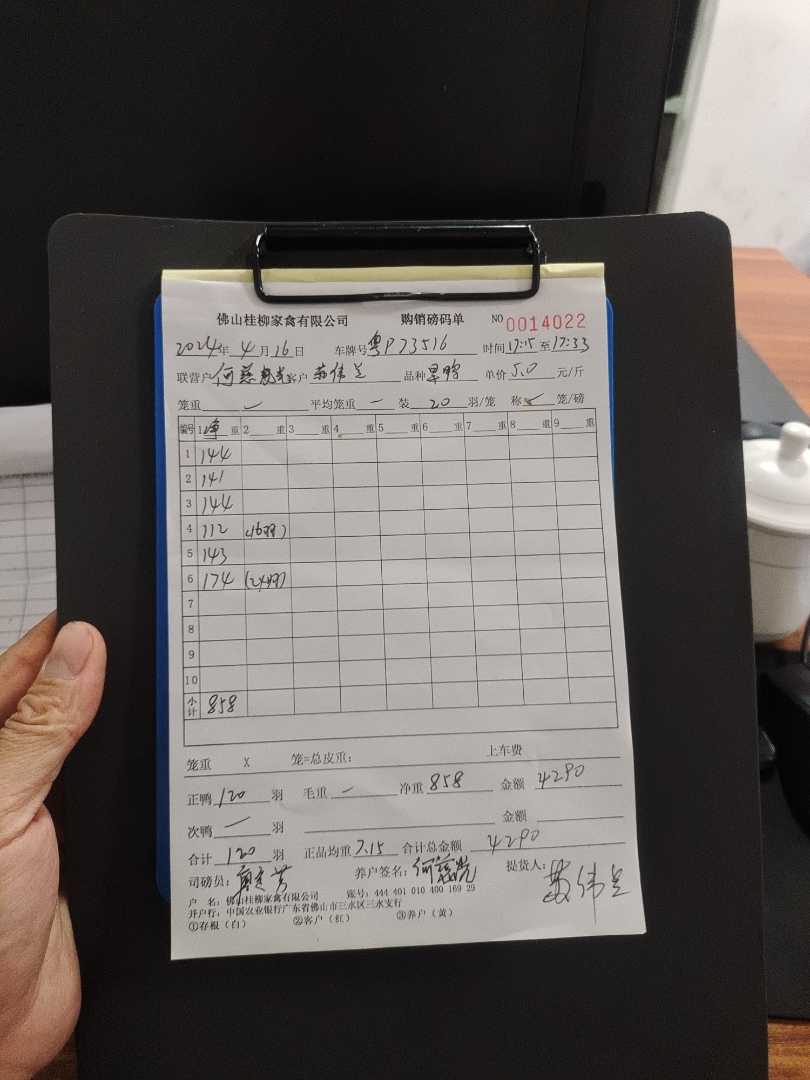 佛山桂柳家禽有限公司 购销磅码单 NO 0014022
2024年 4月16日 车牌号粤P73516 时间17:15至17:33
联营户 何慈 客户 苏伟 品种 单价 5.0 元/斤
笼重 一 平均笼重 一 装 20 羽/笼 称 笼/磅
编号 1净重 2 重 3 重 4 重 5 重 6 重 7 重 8 重 9 重
1 144
2 141
3 144
4 112 (16羽)
5 143
6 174 (24羽)
7
8
9
10
小计 858
笼重 X 笼=总皮重: 上车费
正鸭 120 羽 毛重 一 净重 858 金额 4290
次鸭 一 羽 金额
合计 120 羽 正品均重 7.15 合计总金额 4290
司磅员: 芳 养户签名: 何慈 提货人: 苏伟
户 名: 佛山桂柳家禽有限公司 账号: 444 401 010 400 169 29
开户行: 中国农业银行广东省佛山市三水区三水支行
①存根(白) ②客户(红) ③养户(黄)